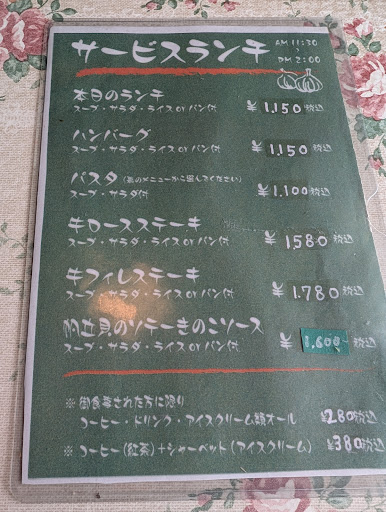 サービスランチ
AM 11:30
〜
PM 2:00
本日のランチ ¥1,150税込
スープ・サラダ・ライス or パン付
ハンバーグ ¥1,150税込
スープ・サラダ・ライス or パン付
パスタ(表のメニューからご選びてください) ¥1,100税込
スープ・サラダ付
牛ロースステーキ ¥1,580税込
スープ・サラダ・ライス or パン付
牛フィレステーキ ¥1,780税込
スープ・サラダ・ライス or パン付
帆立貝のソテーきのこソース ¥1,600税込
スープ・サラダ・ライス or パン付
※御食事された方に限り
コーヒー・ドリンク・アイスクリーム類オール ¥280税込
※コーヒー(紅茶)+シャーベット(アイスクリーム) ¥380税込